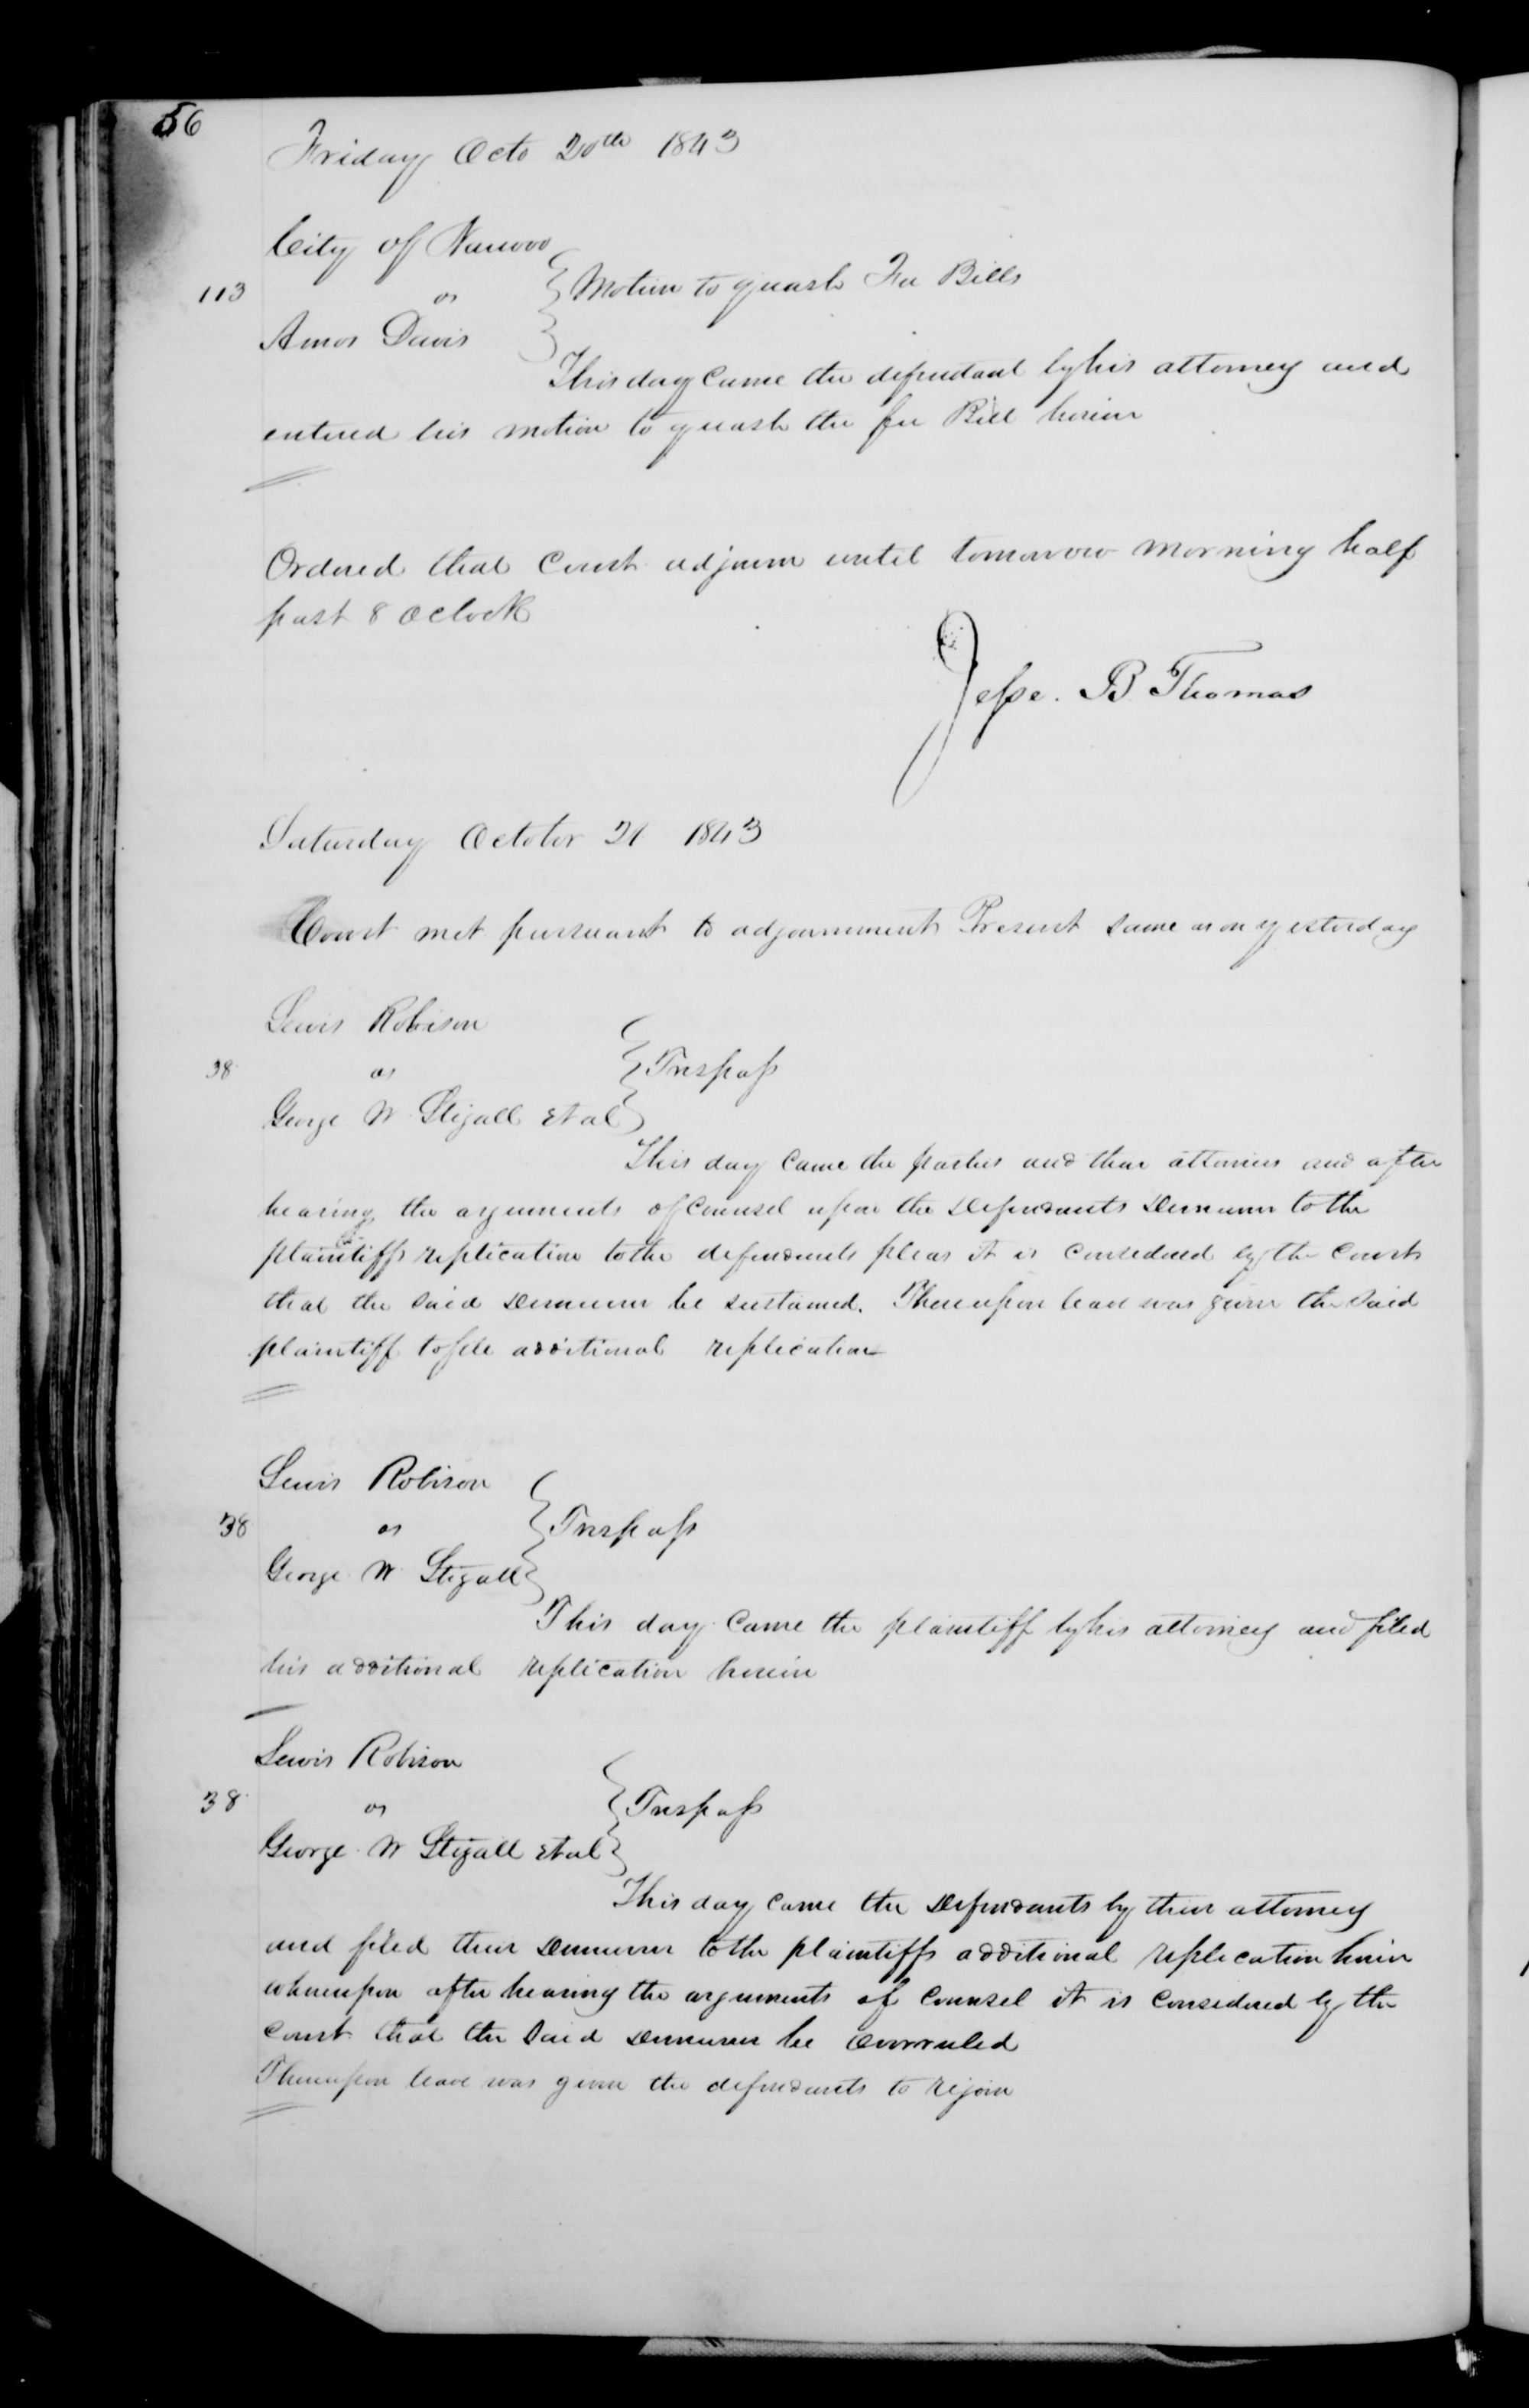 56
Friday Octo 20th 1843
City of Nauvoo
113 vs } Motion to quash Fee Bills
Amos Davis
This day came the defendant by his attorney and
entered his motion to quash the fee Bill herein
Ordered that Court adjourn until tomorrow morning half
past 8 Oclock
Jesse. B Thomas
Saturday October 21 1843
Court met pursuant to adjournment Present same as on yesterday
Lewis Robison
38 vs } Trespass
George W Stigall et al
This day came the parties and their attornies and after
hearing the arguments of counsel upon the Defendants Demurrer to the
plaintiffs replication to the defendants pleas it is considered by the Court
that the said Demurrer be sustained. Thereupon leave was given the said
plaintiff to file additional replication
Lewis Robison
38 vs } Trespass
George W Stigall
This day came the plaintiff by his attorney and filed
his additional replication herein
Lewis Robison
38 vs } Trespass
George W Stigall et al
This day came the Defendants by their attorney
and filed their Demurrer to the plaintiffs additional replication herein
whereupon after hearing the arguments of counsel it is considered by the
Court that the said Demurrer be overruled
Thereupon leave was given the defendants to rejoin